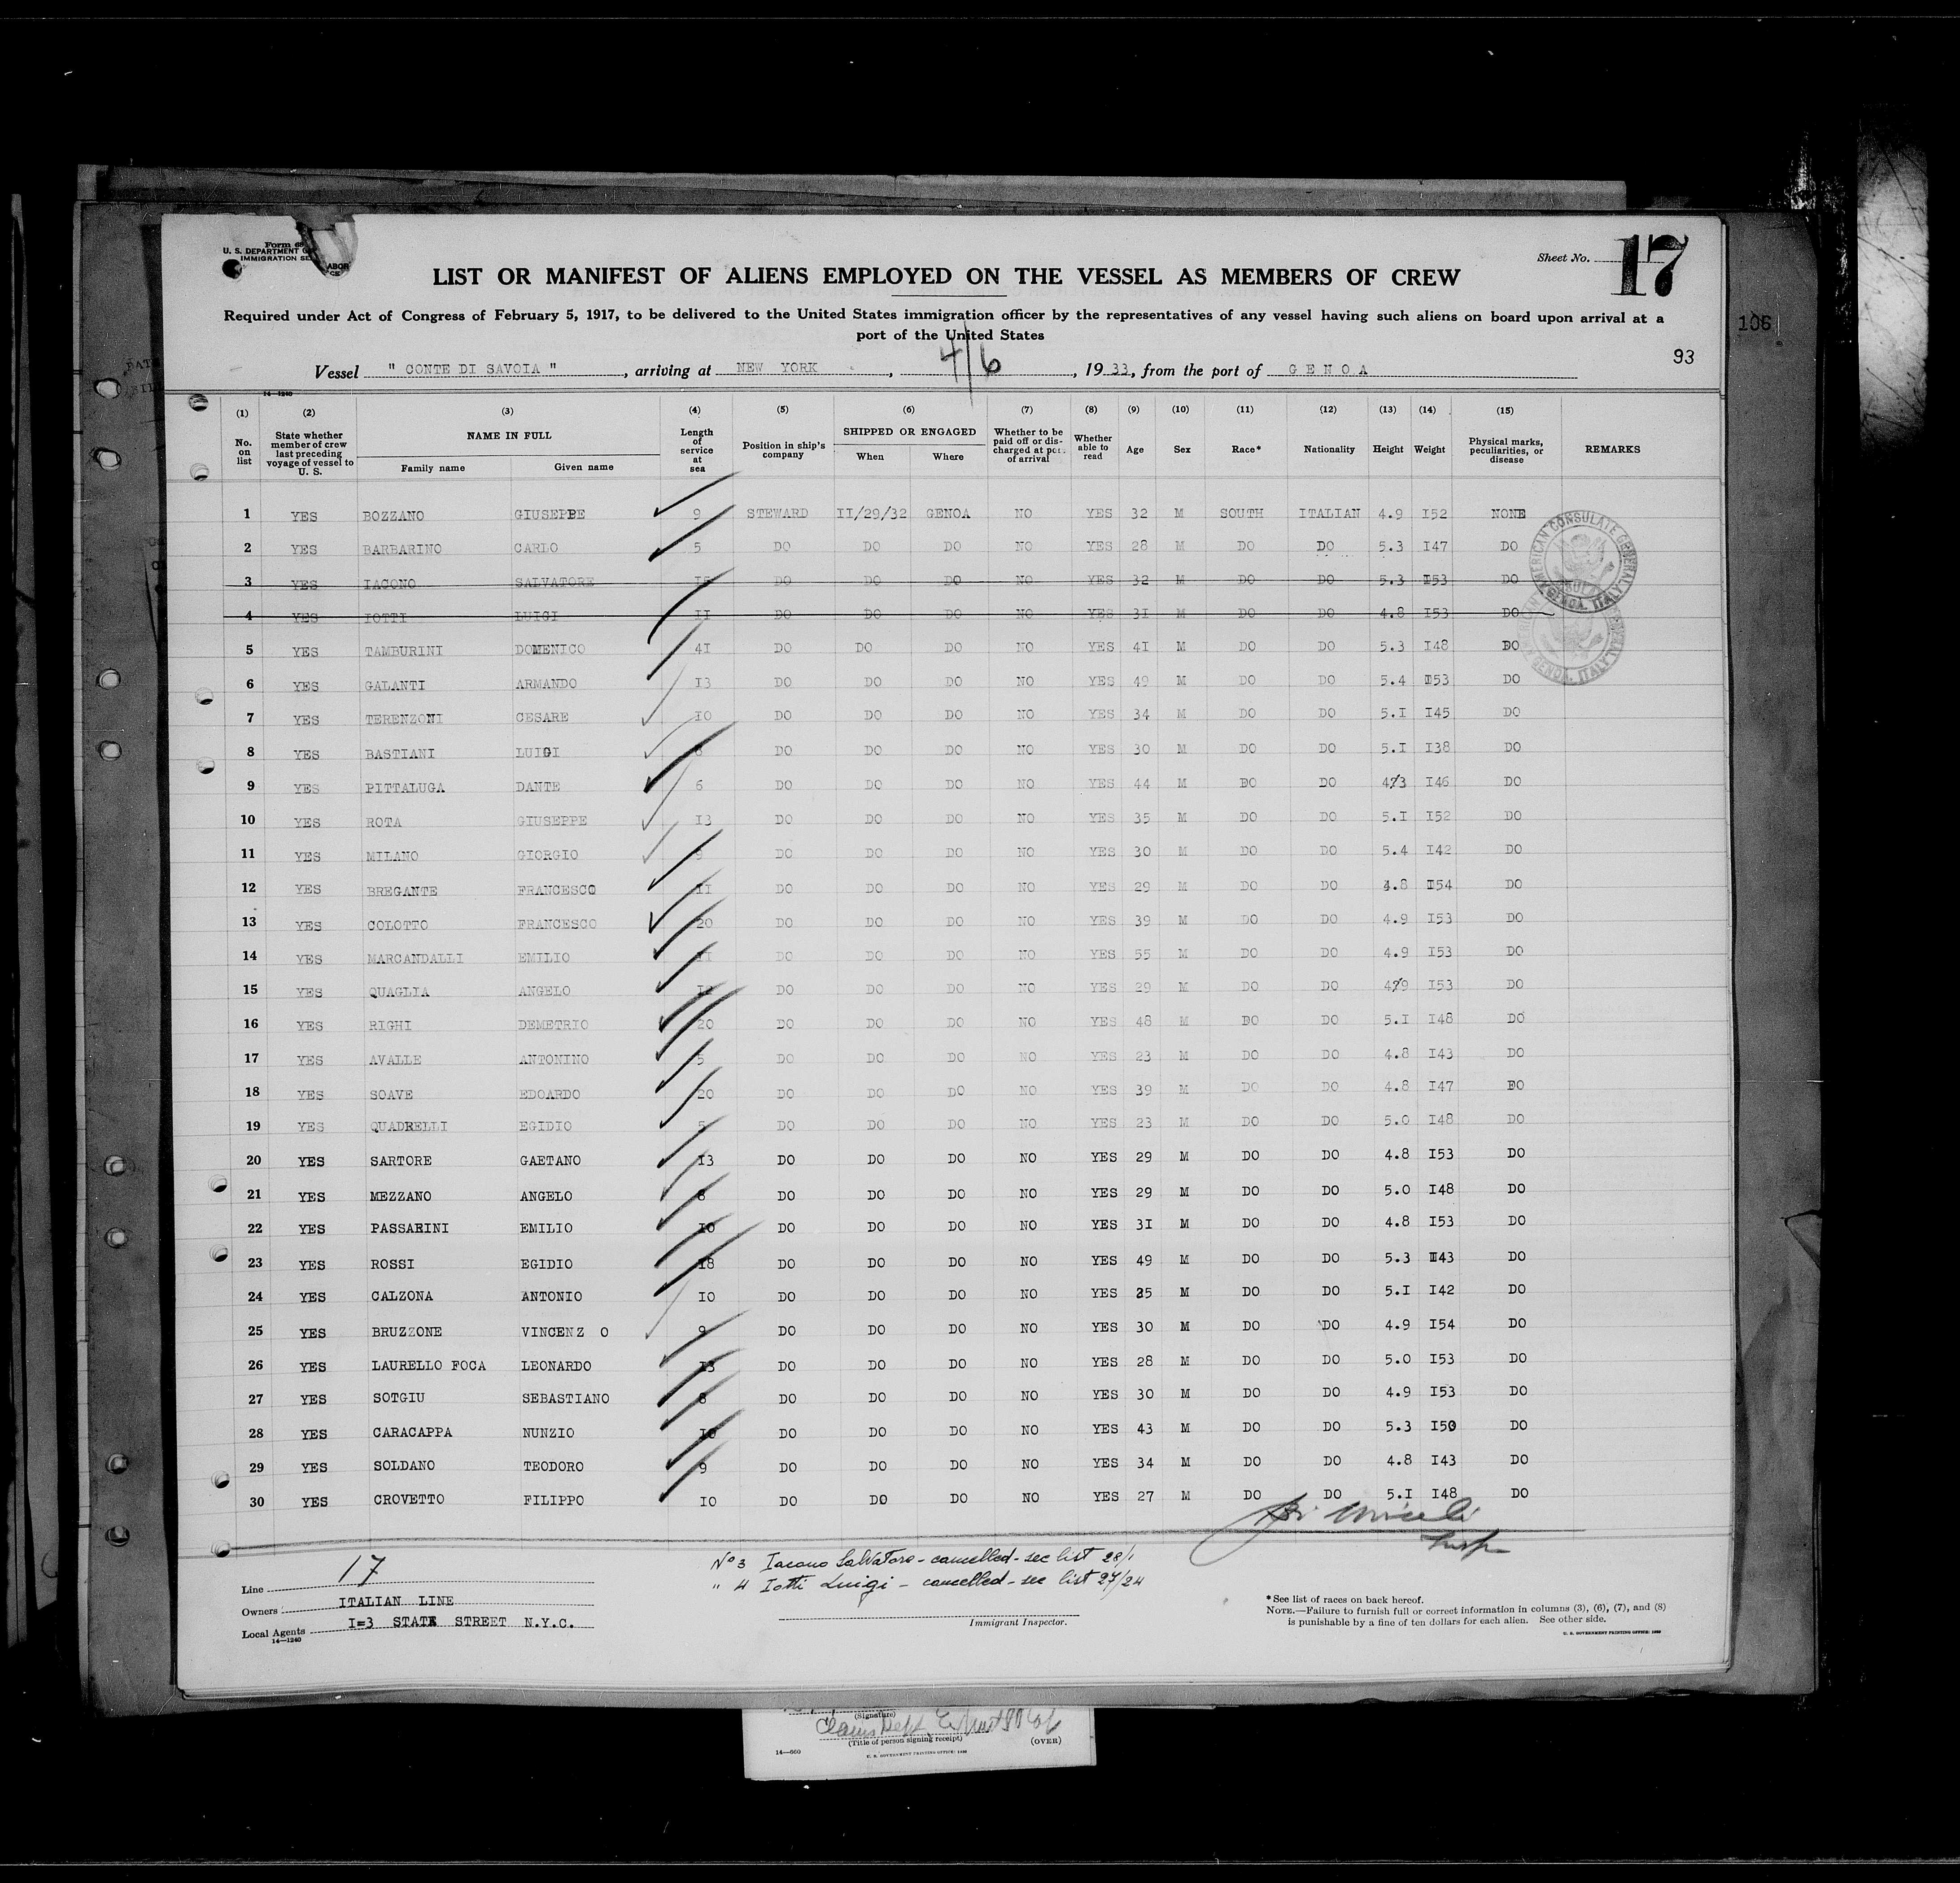 Form 68
U. S. DEPARTMENT OF LABOR
IMMIGRATION SERVICE
Sheet No. 17
LIST OR MANIFEST OF ALIENS EMPLOYED ON THE VESSEL AS MEMBERS OF CREW
Required under Act of Congress of February 5, 1917, to be delivered to the United States immigration officer by the representatives of any vessel having such aliens on board upon arrival at a
port of the United States
106
93
Vessel " CONTE DI SAVOIA ", arriving at NEW YORK, 4/6, 1933, from the port of GENOA
14—1240
(1) (2) (3) (4) (5) (6) (7) (8) (9) (10) (11) (12) (13) (14) (15)
No. on list State whether member of crew last preceding voyage of vessel to U. S. NAME IN FULL Family name Given name Length of service at sea Position in ship's company SHIPPED OR ENGAGED When Where Whether to be paid off or discharged at port of arrival Whether able to read Age Sex Race* Nationality Height Weight Physical marks, peculiarities, or disease REMARKS
1 YES BOZZANO GIUSEPPE 9 STEWARD II/29/32 GENOA NO YES 32 M SOUTH ITALIAN 4.9 I52 NONE
2 YES BARBARINO CARLO 5 DO DO DO NO YES 28 M DO DO 5.3 I47 DO
3 YES IACONO SALVATORE DO DO DO NO YES 32 M DO DO 5.3 I53 DO
4 YES IOTTI LUIGI II DO DO DO NO YES 3I M DO DO 4.8 I53 DO
5 YES TAMBURINI DOMENICO 4I DO DO DO NO YES 4I M DO DO 5.3 I48 DO
6 YES GALANTI ARMANDO I3 DO DO DO NO YES 49 M DO DO 5.4 I53 DO
7 YES TERENZONI CESARE IO DO DO DO NO YES 34 M DO DO 5.I I45 DO
8 YES BASTIANI LUIGI DO DO DO NO YES 30 M DO DO 5.I I38 DO
9 YES PITTALUGA DANTE 6 DO DO DO NO YES 44 M DO DO 4.3 I46 DO
10 YES ROTA GIUSEPPE I3 DO DO DO NO YES 35 M DO DO 5.I I52 DO
11 YES MILANO GIORGIO DO DO DO NO YES 30 M DO DO 5.4 I42 DO
12 YES BREGANTE FRANCESCO II DO DO DO NO YES 29 M DO DO 4.8 I54 DO
13 YES COLOTTO FRANCESCO 20 DO DO DO NO YES 39 M DO DO 4.9 I53 DO
14 YES MARCANDALLI EMILIO DO DO DO NO YES 55 M DO DO 4.9 I53 DO
15 YES QUAGLIA ANGELO I2 DO DO DO NO YES 29 M DO DO 4.9 I53 DO
16 YES RIGHI DEMETRIO 20 DO DO DO NO YES 48 M DO DO 5.I I48 DO
17 YES AVALLE ANTONINO 5 DO DO DO NO YES 23 M DO DO 4.8 I43 DO
18 YES SOAVE EDOARDO 20 DO DO DO NO YES 39 M DO DO 4.8 I47 DO
19 YES QUADRELLI EGIDIO 5 DO DO DO NO YES 23 M DO DO 5.0 I48 DO
20 YES SARTORE GAETANO I3 DO DO DO NO YES 29 M DO DO 4.8 I53 DO
21 YES MEZZANO ANGELO 8 DO DO DO NO YES 29 M DO DO 5.0 I48 DO
22 YES PASSARINI EMILIO IO DO DO DO NO YES 3I M DO DO 4.8 I53 DO
23 YES ROSSI EGIDIO I8 DO DO DO NO YES 49 M DO DO 5.3 I43 DO
24 YES CALZONA ANTONIO IO DO DO DO NO YES 25 M DO DO 5.I I42 DO
25 YES BRUZZONE VINCENZ O 9 DO DO DO NO YES 30 M DO DO 4.9 I54 DO
26 YES LAURELLO FOCA LEONARDO I3 DO DO DO NO YES 28 M DO DO 5.0 I53 DO
27 YES SOTGIU SEBASTIANO 8 DO DO DO NO YES 30 M DO DO 4.9 I53 DO
28 YES CARACAPPA NUNZIO IO DO DO DO NO YES 43 M DO DO 5.3 I50 DO
29 YES SOLDANO TEODORO 9 DO DO DO NO YES 34 M DO DO 4.8 I43 DO
30 YES CROVETTO FILIPPO IO DO DO DO NO YES 27 M DO DO 5.I I48 DO
AMERICAN CONSULATE GENERAL GENOA, ITALY
GENERAL GENOA, ITALY
Line 17
Owners ITALIAN LINE
Local Agents I=3 STATE STREET N.Y.C.
14—1240
No 3 Iacono Salvatore - cancelled - see list 28/1
" 4 Iotti Luigi - cancelled - see list 27/24
Immigrant Inspector.
*See list of races on back hereof.
NOTE.—Failure to furnish full or correct information in columns (3), (6), (7), and (8)
is punishable by a fine of ten dollars for each alien. See other side.
U. S. GOVERNMENT PRINTING OFFICE
(Signature)
(Title of person signing receipt)
(OVER)
14—660
U. S. GOVERNMENT PRINTING OFFICE